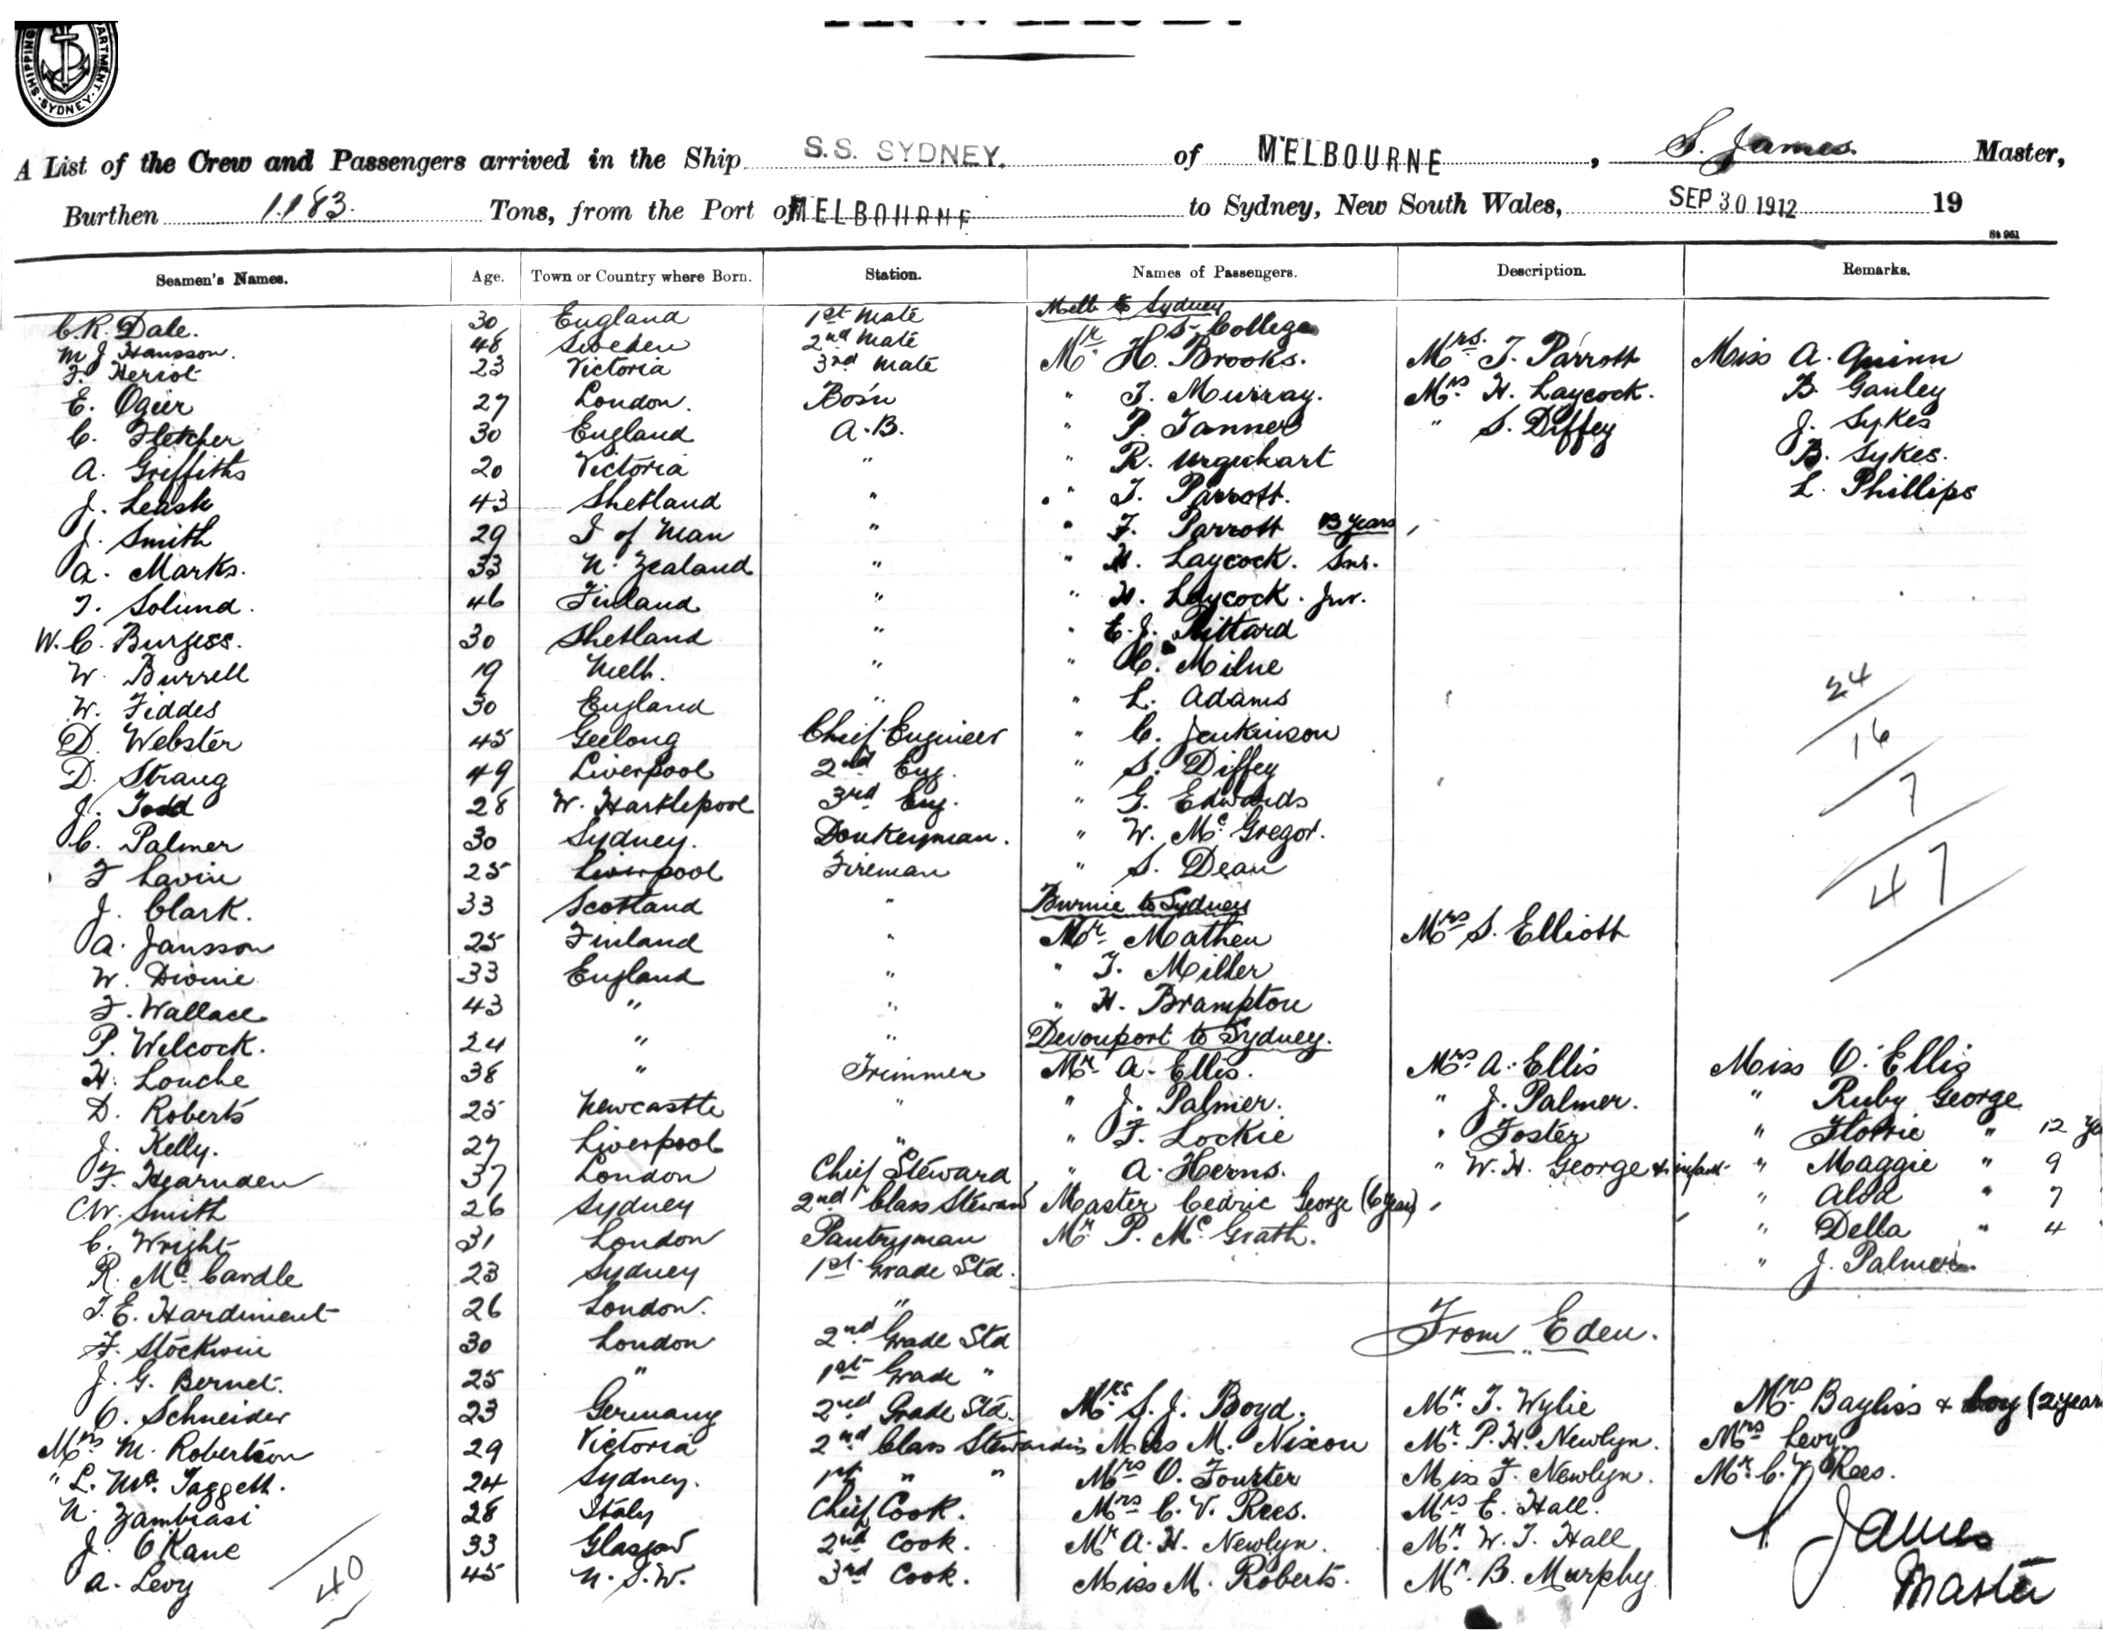 SHIPPING
ARTMENT. SYDNEY.
A List of the Crew and Passengers arrived in the Ship S.S. SYDNEY. of MELBOURNE , S. James Master,
Burthen 1.183. Tons, from the Port of MELBOURNE to Sydney, New South Wales, SEP 30 1912 19
St 961
Seamen's Names. Age. Town or Country where Born. Station. Names of Passengers. Description. Remarks.
Melb to Sydney
C.R. Dale. 30 England 1st Mate S. College
M J Hansson. 48 Sweden 2nd Mate Mr. H. Brooks. Mrs. T. Parrott Miss A. Quinn
F. Heriot 23 Victoria 3rd Mate
E. Ogier 27 London. Bos'n " T. Murray. Mrs H. Laycock. B. Ganley
C. Fletcher 30 England A.B. " P. Tanner " S. Diffey J. Sykes
A. Griffiths 20 Victoria " " R. Urquhart B. Sykes.
J. Leask 43 Shetland " " T. Parrott. L. Phillips
J. Smith 29 I of Man " " F. Parrott 13 years
A. Marks. 33 N. Zealand " " H. Laycock. Snr.
T. Solund. 46 Finland " " H. Laycock. Jnr.
W. C. Burgess. 30 Shetland " " E. J. Pittard
W. Burrell 19 Melb. " " C. Milne
W. Fiddes 30 England " " L. Adams 24
D. Webster 45 Geelong Chief Engineer " C. Jenkinson 16
D. Strang 49 Liverpool 2nd Eng. " S. Diffey
J. Todd 28 W. Hartlepool 3rd Eng. " G. Edwards 7
C. Palmer 30 Sydney. Donkeyman. " W. Mc Gregor.
F Lavin 25 Liverpool Fireman " S. Dean 47
J. Clark. 33 Scotland " Burnie to Sydney
A. Jansson 25 Finland " Mr. Mathew Mrs S. Elliott
W. Divine 33 England " " T. Miller
F. Wallace 43 " " " H. Brampton
P. Welcock. 24 " " Devonport to Sydney.
H. Louche 38 " Trimmer Mr. A. Ellis. Mrs A. Ellis Miss O. Ellis
D. Roberts 25 Newcastle " " J. Palmer. " J. Palmer. " Ruby George
J. Kelly. 27 Liverpool " " F. Lockie " Foster " Florrie " 12
F. Hearnden 37 London Chief Steward " A. Herns. " W. H. George & infant " Maggie " 9
C.W. Smith 26 Sydney 2nd Class Steward Master Cedric George (6 years) " Alva " 7
C. Wright 31 London Pantryman Mr. P. Mc Grath. " Della " 4
R. Mc Cardle 23 Sydney 1st Grade Std. " J. Palmer
T. E. Hardiment 26 London. "
From Eden.
F. Stockwin 30 London 2nd Grade Std
J. G. Bernet. 25 " 1st Grade "
O. Schneider 23 Germany 2nd Grade Std. Mrs. S. J. Boyd. Mr. T. Wylie Mrs Bayliss & boy (2 year
Mrs M. Robertson 29 Victoria 2nd Class Stewardess Miss M. Nixon Mr. P. H. Newlyn. Mrs Levy
" L. Mc. Taggett. 24 Sydney. 1st " " Mrs O. Fourter Miss F. Newlyn. Mr. C. V Rees.
N. Zambiasi 28 Italy Chief Cook. Mrs C. V. Rees. Mrs E. Hall.
J. O'Kane 33 Glasgow 2nd Cook. Mr A. H. Newlyn. Mr. W. T. Hall S. James
A. Levy 45 N. S. W. 3rd Cook. Miss M. Roberts. Mr. B. Murphy Master
40